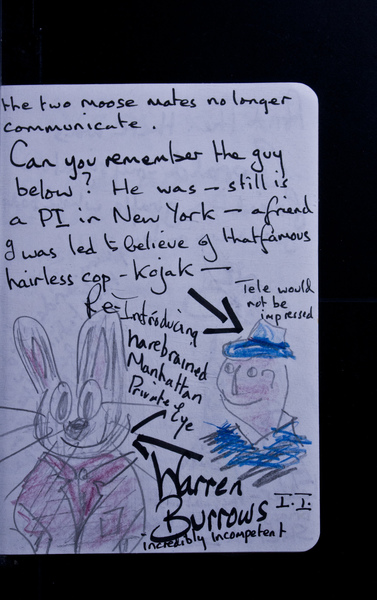 the two moose mates no longer
communicate.
Can you remember the guy
below? He was — still is
a PI in New York — a friend
I was led to believe of that famous
hairless cop - Kojak —
Tele would
not be
impressed
Re-Introducing
harebrained
Manhattan
Private Eye
Warren
Burrows I.I.
- incredibly incompetent